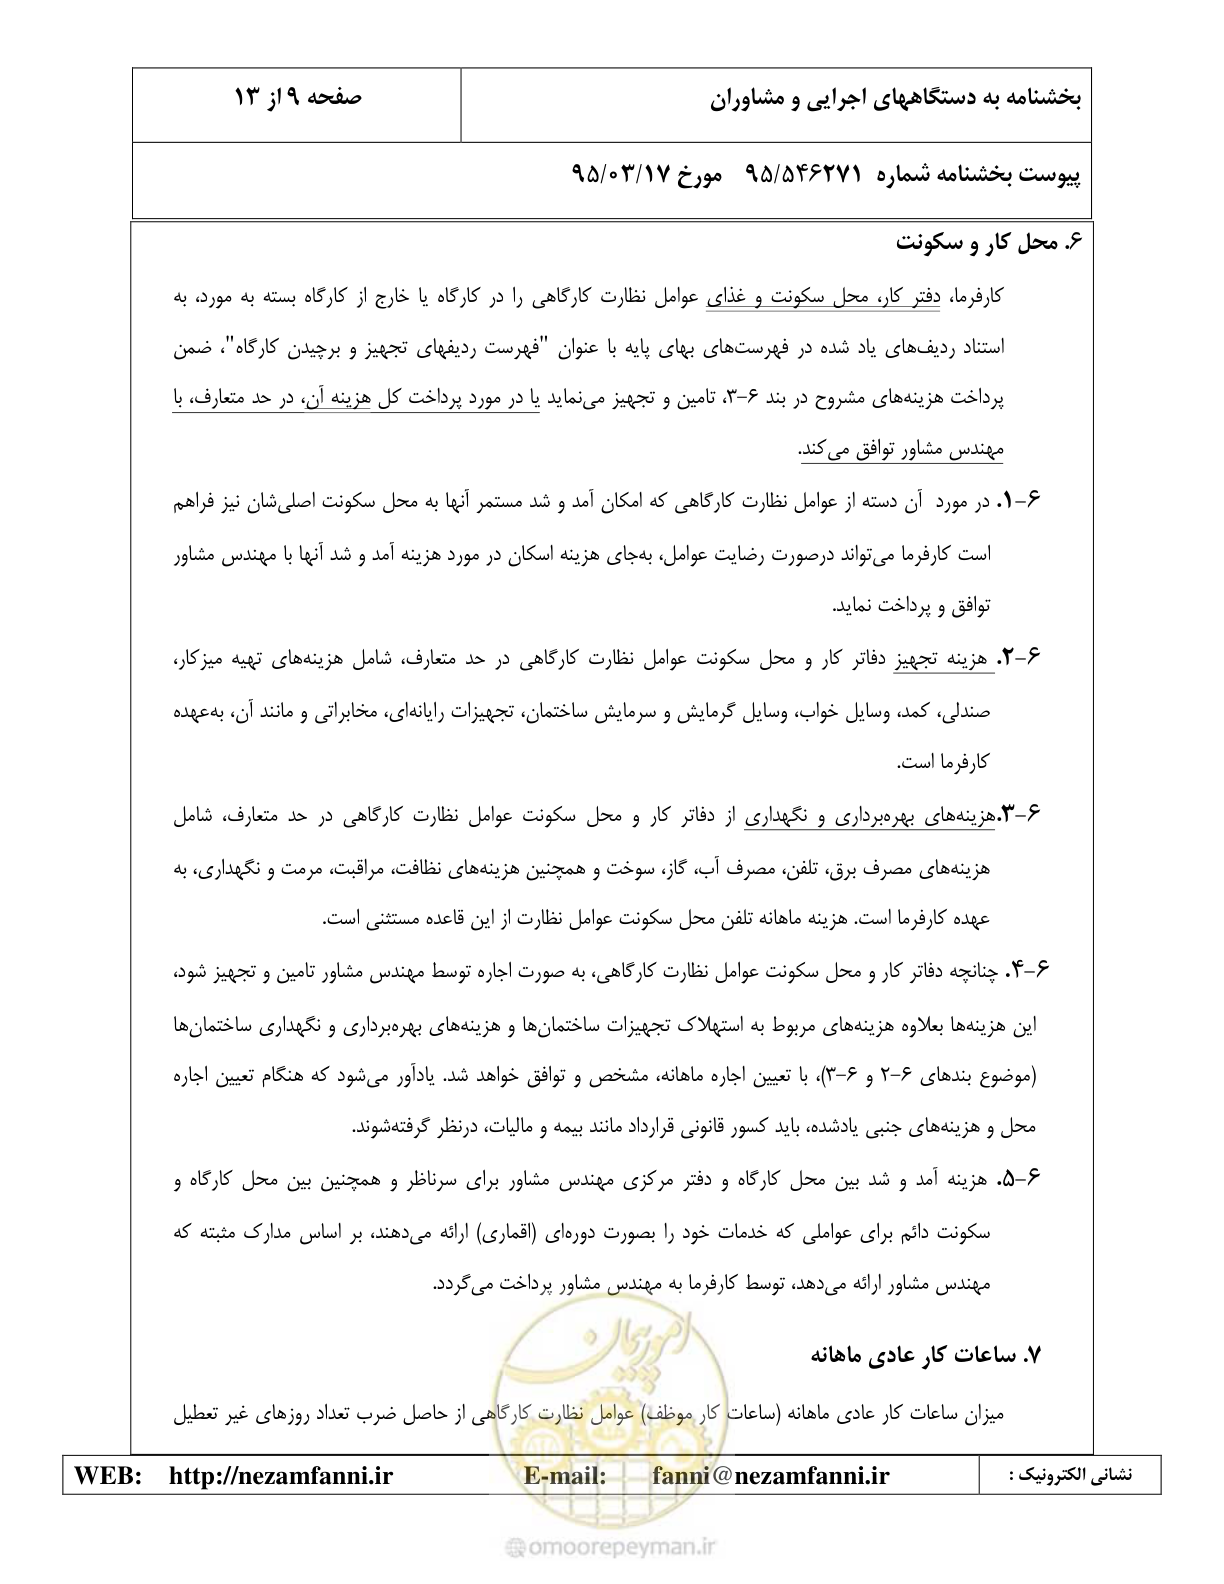 بخشنامه به دستگاههای اجرایی و مشاوران
صفحه ۹ از ۱۳
پیوست بخشنامه شماره ۹۵/۵۴۶۲۷۱ مورخ ۹۵/۰۳/۱۷
۶. محل کار و سکونت
کارفرما، دفتر کار، محل سکونت و غذای عوامل نظارت کارگاهی را در کارگاه یا خارج از کارگاه بسته به مورد، به
استناد ردیف‌های یاد شده در فهرست‌های بهای پایه با عنوان "فهرست ردیفهای تجهیز و برچیدن کارگاه"، ضمن
پرداخت هزینه‌های مشروح در بند ۶-۳، تامین و تجهیز می‌نماید یا در مورد پرداخت کل هزینه آن، در حد متعارف، با
مهندس مشاور توافق می‌کند.
۶-۱. در مورد آن دسته از عوامل نظارت کارگاهی که امکان آمد و شد مستمر آنها به محل سکونت اصلی‌شان نیز فراهم
است کارفرما می‌تواند درصورت رضایت عوامل، به‌جای هزینه اسکان در مورد هزینه آمد و شد آنها با مهندس مشاور
توافق و پرداخت نماید.
۶-۲. هزینه تجهیز دفاتر کار و محل سکونت عوامل نظارت کارگاهی در حد متعارف، شامل هزینه‌های تهیه میزکار،
صندلی، کمد، وسایل خواب، وسایل گرمایش و سرمایش ساختمان، تجهیزات رایانه‌ای، مخابراتی و مانند آن، به‌عهده
کارفرما است.
۶-۳.هزینه‌های بهره‌برداری و نگهداری از دفاتر کار و محل سکونت عوامل نظارت کارگاهی در حد متعارف، شامل
هزینه‌های مصرف برق، تلفن، مصرف آب، گاز، سوخت و همچنین هزینه‌های نظافت، مراقبت، مرمت و نگهداری، به
عهده کارفرما است. هزینه ماهانه تلفن محل سکونت عوامل نظارت از این قاعده مستثنی است.
۶-۴. چنانچه دفاتر کار و محل سکونت عوامل نظارت کارگاهی، به صورت اجاره توسط مهندس مشاور تامین و تجهیز شود،
این هزینه‌ها بعلاوه هزینه‌های مربوط به استهلاک تجهیزات ساختمان‌ها و هزینه‌های بهره‌برداری و نگهداری ساختمان‌ها
(موضوع بندهای ۶-۲ و ۶-۳)، با تعیین اجاره ماهانه، مشخص و توافق خواهد شد. یادآور می‌شود که هنگام تعیین اجاره
محل و هزینه‌های جنبی یادشده، باید کسور قانونی قرارداد مانند بیمه و مالیات، درنظر گرفته‌شوند.
۶-۵. هزینه آمد و شد بین محل کارگاه و دفتر مرکزی مهندس مشاور برای سرناظر و همچنین بین محل کارگاه و
سکونت دائم برای عواملی که خدمات خود را بصورت دوره‌ای (اقماری) ارائه می‌دهند، بر اساس مدارک مثبته که
مهندس مشاور ارائه می‌دهد، توسط کارفرما به مهندس مشاور پرداخت می‌گردد.
۷. ساعات کار عادی ماهانه
میزان ساعات کار عادی ماهانه (ساعات کار موظف) عوامل نظارت کارگاهی از حاصل ضرب تعداد روزهای غیر تعطیل
نشانی الکترونیک :
WEB: http://nezamfanni.ir E-mail: fanni@nezamfanni.ir
امور پیمان
@omoorepeyman.ir